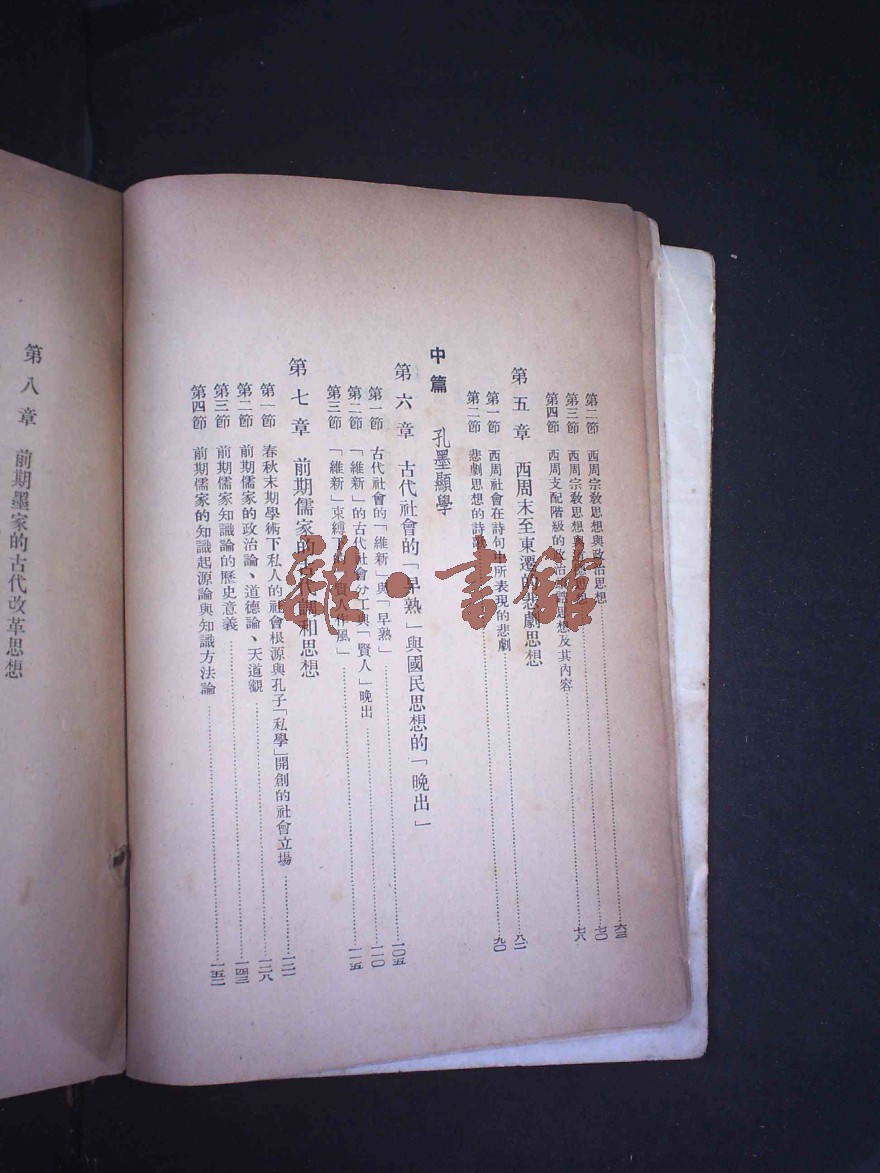 第二節 西周宗教思想與政治思想 六三
第三節 西周宗教思想與道德思想 七〇
第四節 西周支配階級的政治 思想及其內容 七八
第五章 西周末至東遷的悲劇思想
第一節 西周社會在詩句中所表現的悲劇 八二
第二節 悲劇思想的詩 九〇
中篇 孔墨顯學
第六章 古代社會的「早熟」與國民思想的「晚出」
第一節 古代社會的「維新」與「早熟」 一〇五
第二節 「維新」的古代社會分工與「賢人」晚出 一一〇
第三節 「維新」束縛下的「賢人作風」 一一五
第七章 前期儒家的古代調和思想
第一節 春秋末期學術下私人的社會根源與孔子「私學」開創的社會立場 一二一
第二節 前期儒家的政治論、道德論、天道觀 一二八
第三節 前期儒家知識論的歷史意義 一四三
第四節 前期儒家的知識起源論與知識方法論 一五二
第八章 前期墨家的古代改革思想
雜·書館